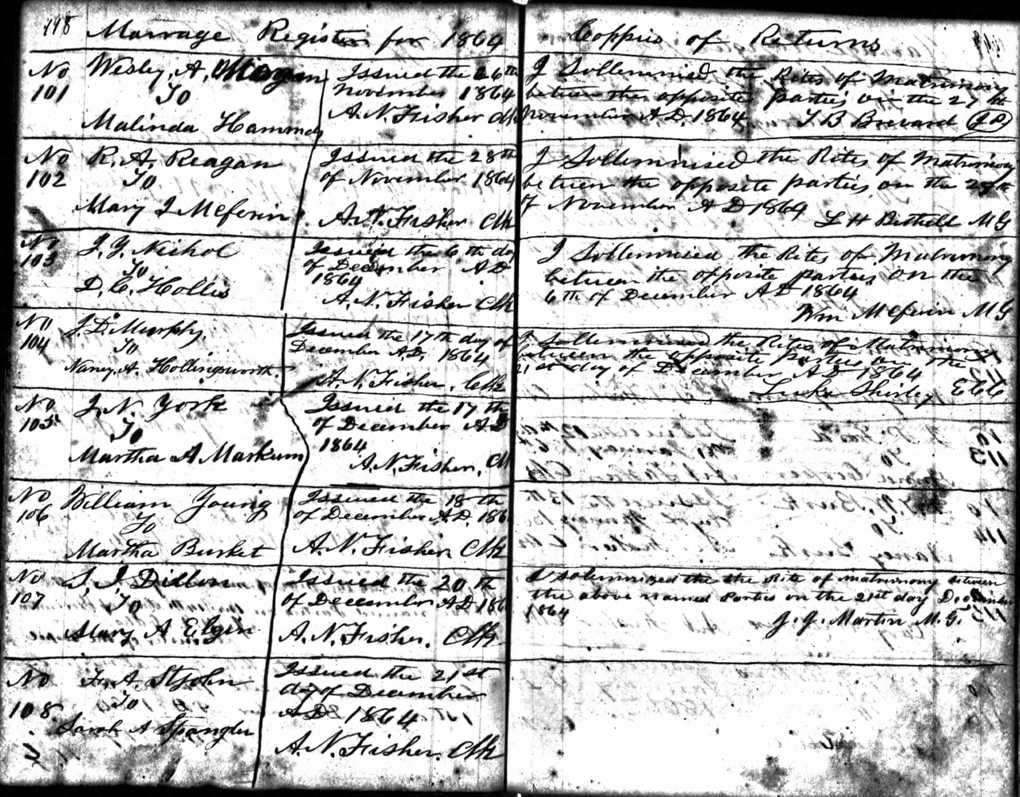 118 Marrage Register for 1864
Coppies of Returns
No 101
Wesley A.
To
Malinda Hammes
Issued the 26th
November 1864
A N Fisher Clk
I Sollemnised the Rites of Matrimony
between the opposite parties on the 27th
November A D. 1864 T B Brevard (JP)
No 102
R. A. Reagan
To
Mary J Mcferin
Issued the 28th
of November 1864
A. N. Fisher Clk
I Sollemnised the Rites of Matrimony
between the opposite parties on the 28th
of November A D 1864
L H Bethell M G
No 103
J. J. Nichol
To
D. C. Hollis
Issued the 6th day
of December A D
1864
A. N. Fisher Clk
I Sollemnised the Rites of Matrimony
between the opposite parties on the
6th of December A D 1864
Wm Mcferin M G
No 104
J. D. Murphy
To
Nancy A. Hollingsworth
Issued the 17th day of
December A D, 1864
A. N. Fisher, Clk
I Sollemnised the Rites of Matrimony
between the opposite Parties on the
21st day of December A D 1864
Shirley
No 105
J. N. York
To
Martha A Markum
Issued the 17th
of December A D
1864
A. N. Fisher, Clk
No 106
William Young
To
Martha Burket
Issued the 18th
of December A. D. 186
A. N. Fisher Clk
No 107
S. J. Dillon
To
Mary A Elgin
Issued the 20th
of December A D 186
A. N. Fisher, Clk
I solemnized the the Rite of matrimony between
the above named Parties on the 21st day December
1864 J. J. Martin M. G.
No 108
F. A. St John
To
Sarah A Spangler
Issued the 21st
day of December
A D. 1864
A. N. Fisher. Clk